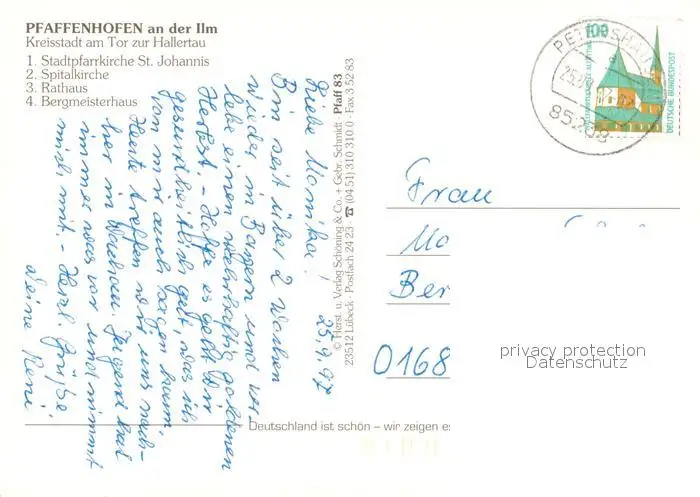 PFAFFENHOFEN an der Ilm
Kreisstadt am Tor zur Hallertau
1. Stadtpfarrkirche St. Johannis
2. Spitalkirche
3. Rathaus
4. Bergmeisterhaus
25.9.97
Liebe Monika!
Bin seit über 2 Wochen
wieder in Bayern und er-
lebe einen wahrhaftig goldenen
Herbst. - Hoffe es geht Dir
gesundheitlich gut, was ich
von mir auch sagen kann.
Heute treffen wir uns nach-
her in
immer was vor und nimmt
mich mit. - Herzl. Grüße
Deine Reni
© Herst. u. Verlag Schöning & Co. + Gebr. Schmidt · Pfaff 83
23512 Lübeck · Postfach 24 23 · ☎ (04 51) 310 310.0 · Fax 3 52 83
100
DEUTSCHE BUNDESPOST
85238
Frau
Mo
Ber
0168
privacy protection
Datenschutz
Deutschland ist schön – wir zeigen es